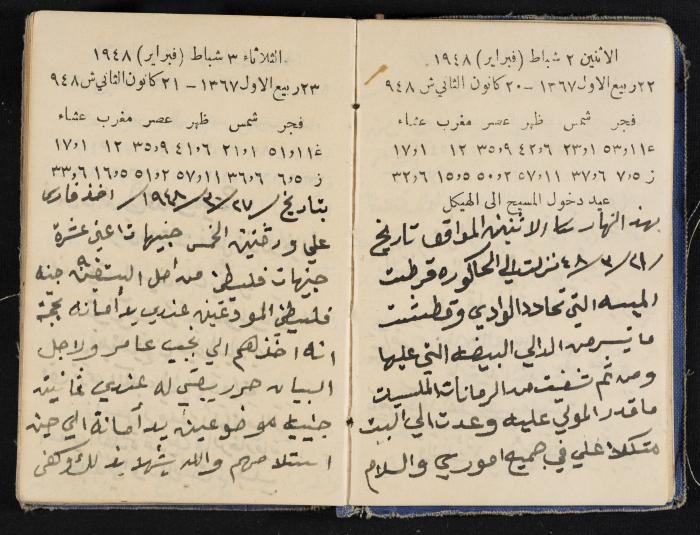 الاثنين ٢ شباط (فبراير) ١٩٤٨
٢٢ ربيع الاول ١٣٦٧ - ٢٠ كانون الثاني ش ٩٤٨
فجر شمس ظهر عصر مغرب عشاء
غ ١١٫٥٣ ١٫٢٣ ٦٫٤٢ ٩٫٣٥ ١٢ ١٫١٧
ز ٥٫٧ ٦٫٣٧ ١١٫٥٧ ٢٫٥٠ ٥٫١٥ ٦٫٣٢
عيد دخول المسيح الى الهيكل
بهذا النهار الاثنين المواقف تاريخ
٤٨/٣/٢١ نزلت الي الحاكوره قرطت
الميسه التي تحادد الوادي وقطشت
ما تيسر من الدالي البيضه التي عليها
ومن ثم شفيت من الرمانات المليسيات
ما قدر المولي عليه وعدت الي البيت
متكلا علي في جميع اموري والسلام
الثلاثاء ٣ شباط (فبراير) ١٩٤٨
٢٣ ربيع الاول ١٣٦٧ - ٢١ كانون الثاني ش ٩٤٨
فجر شمس ظهر عصر مغرب عشاء
غ ١١٫٥١ ١٫٢١ ٦٫٤١ ٩٫٣٥ ١٢ ١٫١٧
ز ٥٫٦ ٦٫٣٦ ١١٫٥٧ ٢٫٥١ ٥٫١٦ ٦٫٣٣
بتاريخ /٢٧/ /١٩٤٨/ اخذ فارس
علي ورثتين الخمس جنيهات اعني عشرة
جنيهات فلسطيني من اصل جنيه
فلسطيني المودعين عندي يد أمانه بحجة
انه اخذهم الي نجيب عامر ولاجل
البيان حرر يبقي له عندي ثمانين
جنيه موضوعين يد أمانة الي حين
استلامهم والله يشهد بذلك وكفى